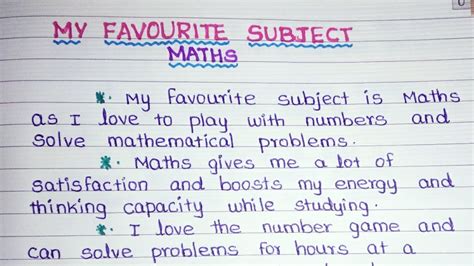 MY FAVOURITE SUBJECT
MATHS
*. My favourite subject is Maths
as I love to play with numbers and
solve mathematical problems.
*. Maths gives me a lot of
satisfaction and boosts my energy and
thinking capacity while studying.
*. I love the number game and
can solve problems for hours at a